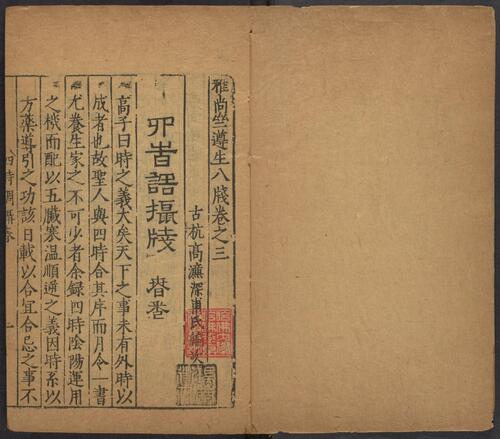 雅尚斋遵生八牋卷之三
古杭高濂深甫氏編次
四時調攝牋 春卷
高子曰時之義大矣天下之事未有外時以
成者也故聖人與四時合其序而月令一書
尤養生家之不可少者余録四時陰陽運用
之機而配以五臟寒温順逆之義因時系以
方藥導引之功該日載以合宜合忌之事不
四時調攝春 一